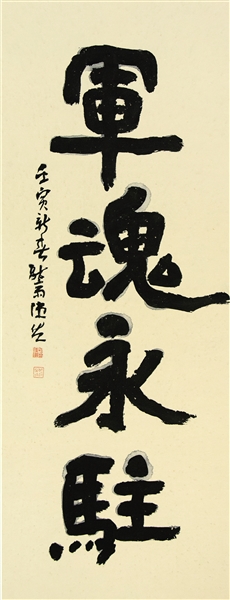 軍魂永駐
壬寅新春